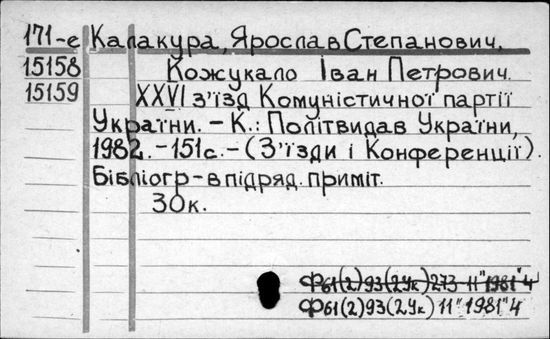 171-е Калакура, Ярослав Степанович,
15158 Кожукало Іван Петрович.
15159 XXVI з'їзд Комуністичної партії
України. - К.: Політвидав України,
1982. - 151с. - (З'їзди і Конференції).
Бібліогр - в підряд. приміт.
30к.
Ф61(2)93(2Ук)273 11"1981"4
Ф61(2)93(2Ук)11"1981"4